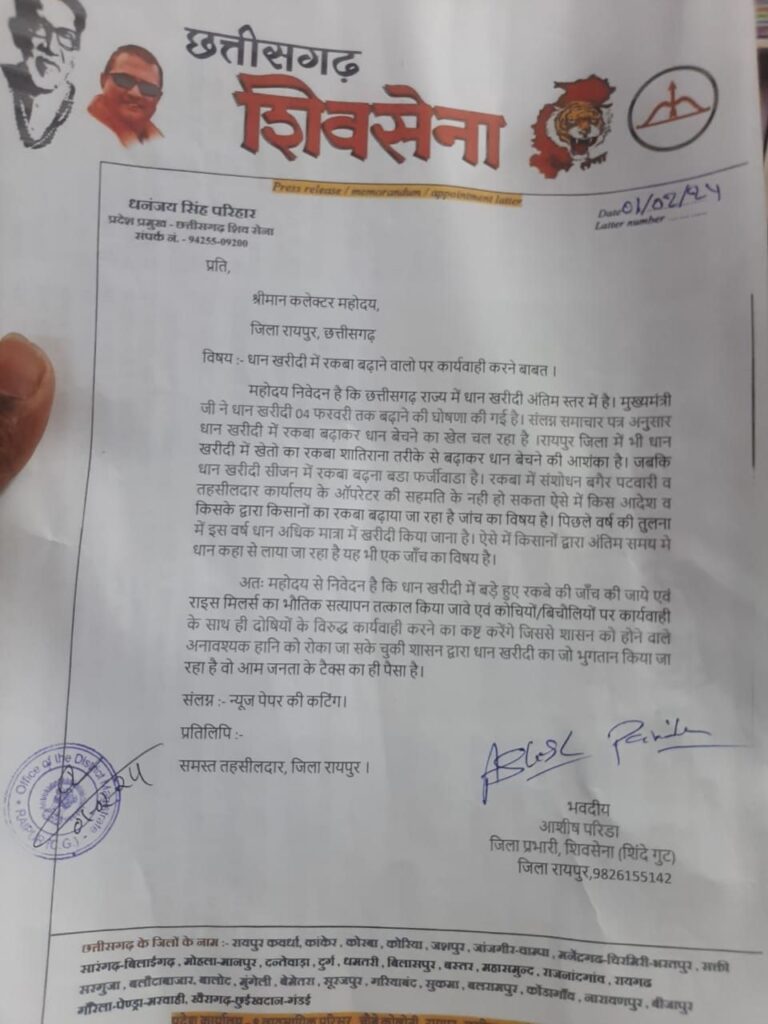 छत्तीसगढ़
शिवसेना
सेना
Press release / memorandum / appointment latter
धनंजय सिंह परिहार
प्रदेश प्रमुख - छत्तीसगढ़ शिव सेना
संपर्क नं. - 94255-09200
Date 01/02/24
Latter number
प्रति,
श्रीमान कलेक्टर महोदय,
जिला रायपुर, छत्तीसगढ़
विषय :- धान खरीदी में रकबा बढ़ाने वालो पर कार्यवाही करने बाबत ।
महोदय निवेदन है कि छत्तीसगढ़ राज्य में धान खरीदी अंतिम स्तर में है। मुख्यमंत्री
जी ने धान खरीदी 04 फरवरी तक बढ़ाने की घोषणा की गई है। संलग्न समाचार पत्र अनुसार
धान खरीदी में रकबा बढ़ाकर धान बेचने का खेल चल रहा है ।रायपुर जिला में भी धान
खरीदी में खेतो का रकबा शातिराना तरीके से बढ़ाकर धान बेचने की आशंका है। जबकि
धान खरीदी सीजन में रकबा बढ़ना बडा फर्जीवाडा है। रकबा में संशोधन बगैर पटवारी व
तहसीलदार कार्यालय के ऑपरेटर की सहमति के नही हो सकता ऐसे में किस आदेश व
किसके द्वारा किसानों का रकबा बढ़ाया जा रहा है जांच का विषय है। पिछले वर्ष की तुलना
में इस वर्ष धान अधिक मात्रा में खरीदी किया जाना है। ऐसे में किसानों द्वारा अंतिम समय मे
धान कहा से लाया जा रहा है यह भी एक जाँच का विषय है।
अतः महोदय से निवेदन है कि धान खरीदी में बड़े हुए रकबे की जाँच की जाये एवं
राइस मिलर्स का भौतिक सत्यापन तत्काल किया जावे एवं कोचियों/बिचौलियों पर कार्यवाही
के साथ ही दोषियों के विरुद्ध कार्यवाही करने का कष्ट करेंगे जिससे शासन को होने वाले
अनावश्यक हानि को रोका जा सके चुकी शासन द्वारा धान खरीदी का जो भुगतान किया जा
रहा है वो आम जनता के टैक्स का ही पैसा है।
संलग्न :- न्यूज पेपर की कटिंग।
प्रतिलिपि :-
समस्त तहसीलदार, जिला रायपुर ।
Office of the District Magistrate
RAIPUR (C.G.)
भवदीय
आशीष परिडा
जिला प्रभारी, शिवसेना (शिंदे गुट)
जिला रायपुर,9826155142
छत्तीसगढ़ के जिलों के नाम :- रायपुर कवर्धा, कांकेर , कोरबा , कोरिया , जशपुर , जांजगीर-चाम्पा , मनेंद्रगढ-चिरमिरी-भरतपुर , सक्ती
सारंगढ-बिलाईगढ़ , मोहला-मानपुर , दन्तेवाड़ा , दुर्ग , धमतरी , बिलासपुर , बस्तर , महासमुन्द , राजनांदगांव , रायगढ
सरगुजा , बलौदाबाजार, बालोद , मुंगेली , बेमेतरा , सूरजपुर , गरियाबंद , सुकमा , बलरामपुर , कोंडागाँव , नारायणपुर , बीजापुर
गौरेला-पेण्ड्रा-मरवाही, खैरागढ-छुईखदान-गंडई